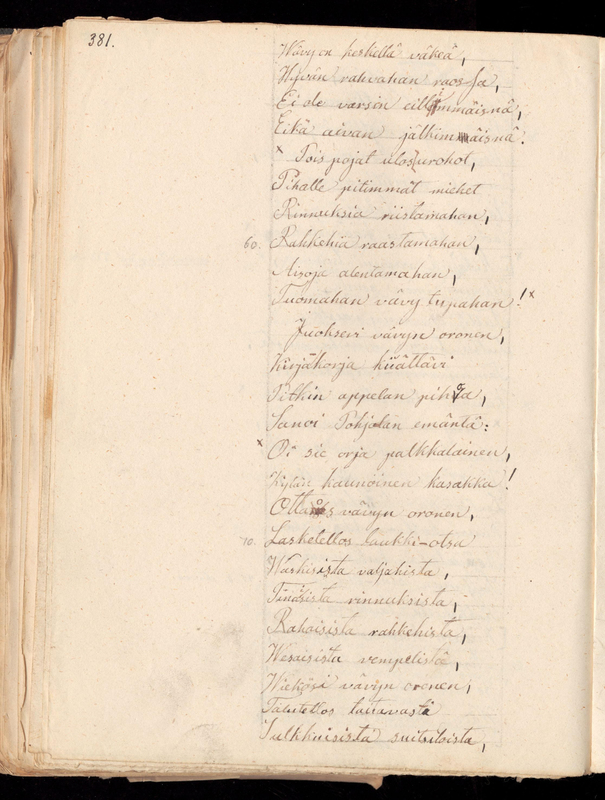 381.
Wävy on keskellä väkeä,
Hyvän rahvahan raossa,
Ei ole varsin eillimmäisnä,
Eikä aivan jälkimmäisnä.
x Pois pojat ulos urohot,
Pihalle pitimmät miehet
Rinnuksia riistamahan,
60. Rahkehia raastamahan,
Aisoja alentamahan,
Tuomahan vävy tupahan! x
Juoksevi vävyn oronen,
Kirjäkorja kiiättävi
Pitkin appelan pihoa,
Sanoi Pohjolan emäntä:
x Oi sie orja palkkalainen,
Kylän kaunoinen kasakka!
Ottaos vävyn oronen,
70. Laskelellos laukki-otsa
Waskisista valjahista,
Tinaisista rinnuksista,
Rahaisista rahkehista,
Wesaisista vempelistä,
WieköSi vävyn oronen,
Talutellos taitavasti
Sulkkuisista suitsiloista,